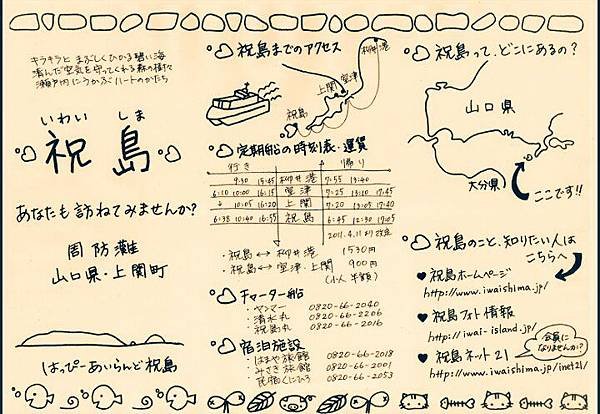 キラキラと まぶしくひかる碧い海
澄んだ空気を守ってくれる森の樹々
瀬戸内にうかぶハートのかたち
いわい しま
祝島
あなたも訪ねてみませんか?
周防灘
山口県・上関町
はっぴーあいらんど祝島
祝島までのアクセス
柳井港
室津
上関
祝島
定期船の時刻表・運賃
行き 帰り
9:30 15:45 柳井港 7:55 13:40
6:10 10:00 16:15 室津 7:25 13:10 17:45
↓ 10:05 16:20 上関 7:20 13:05 17:40
6:38 10:40 16:55 祝島 6:45 12:30 17:05
2011.4.11 改正
・祝島↔柳井港 1530円
・祝島↔室津・上関 900円
(小人 半額)
チャーター船
・ヤンマー 0820-66-2040
・清水丸 0820-66-2206
・祝島丸 0820-66-2016
宿泊施設
・はまや旅館 0820-66-2018
・みさき旅館 0820-66-2001
・民宿くにひろ 0820-66-2053
祝島って、どこにあるの?
山口県
大分県
ここです!!
祝島のこと、知りたい人は
こちらへ
♥ 祝島ホームページ
http://www.iwaishima.jp/
♥ 祝島フォト情報
http://iwai-island.jp/
♥ 祝島ネット21
会員に
なりませんか?
http://www.iwaishima.jp/inet21/